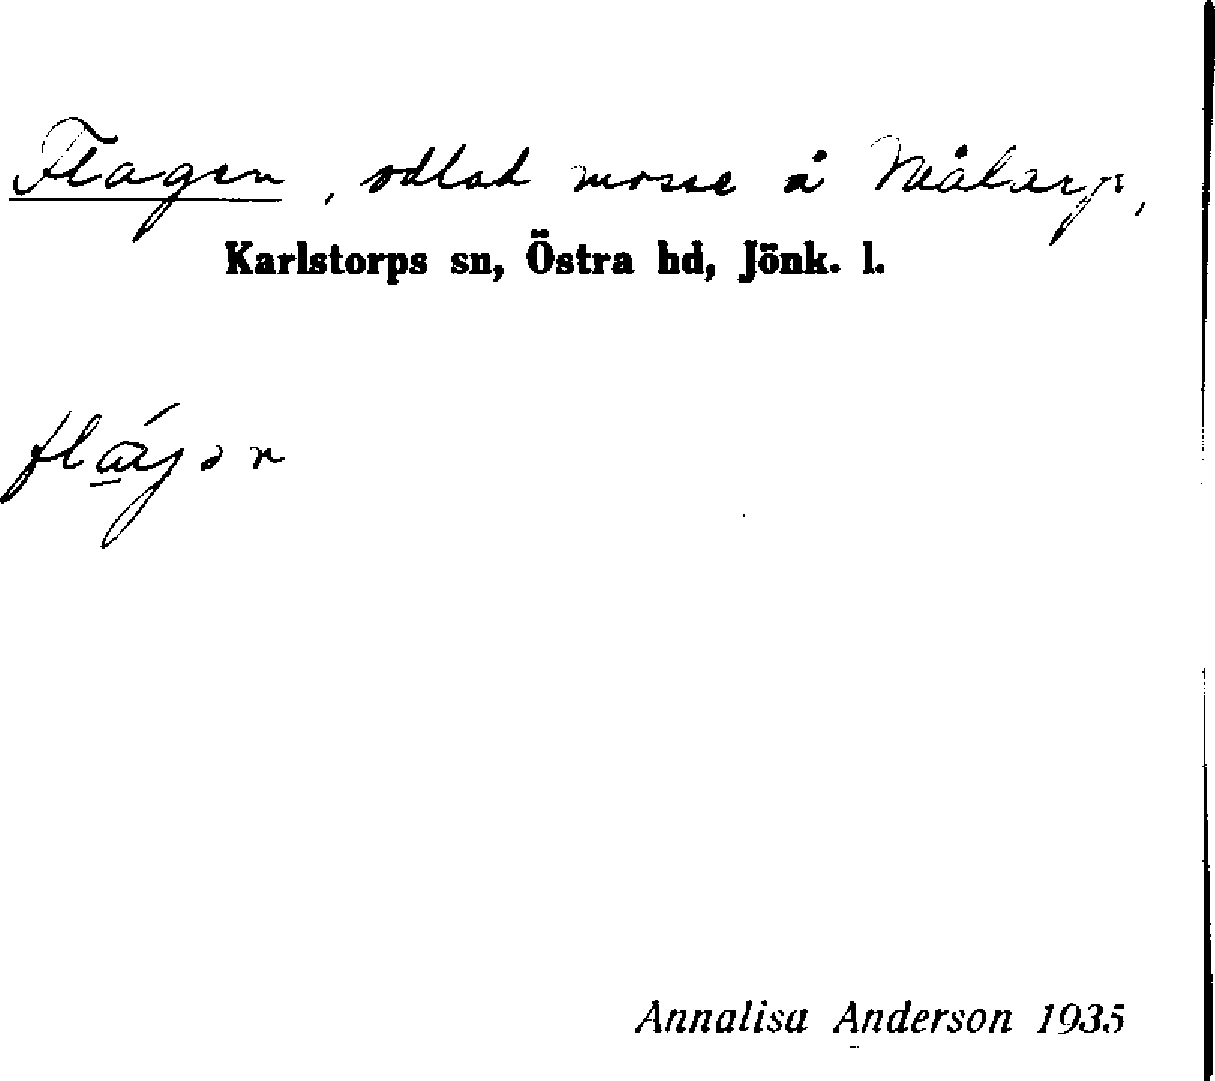 Flagen, odlad mosse å Målarp,
Karlstorps sn, Östra hd, Jönk. l.
Annalisa Anderson 1935